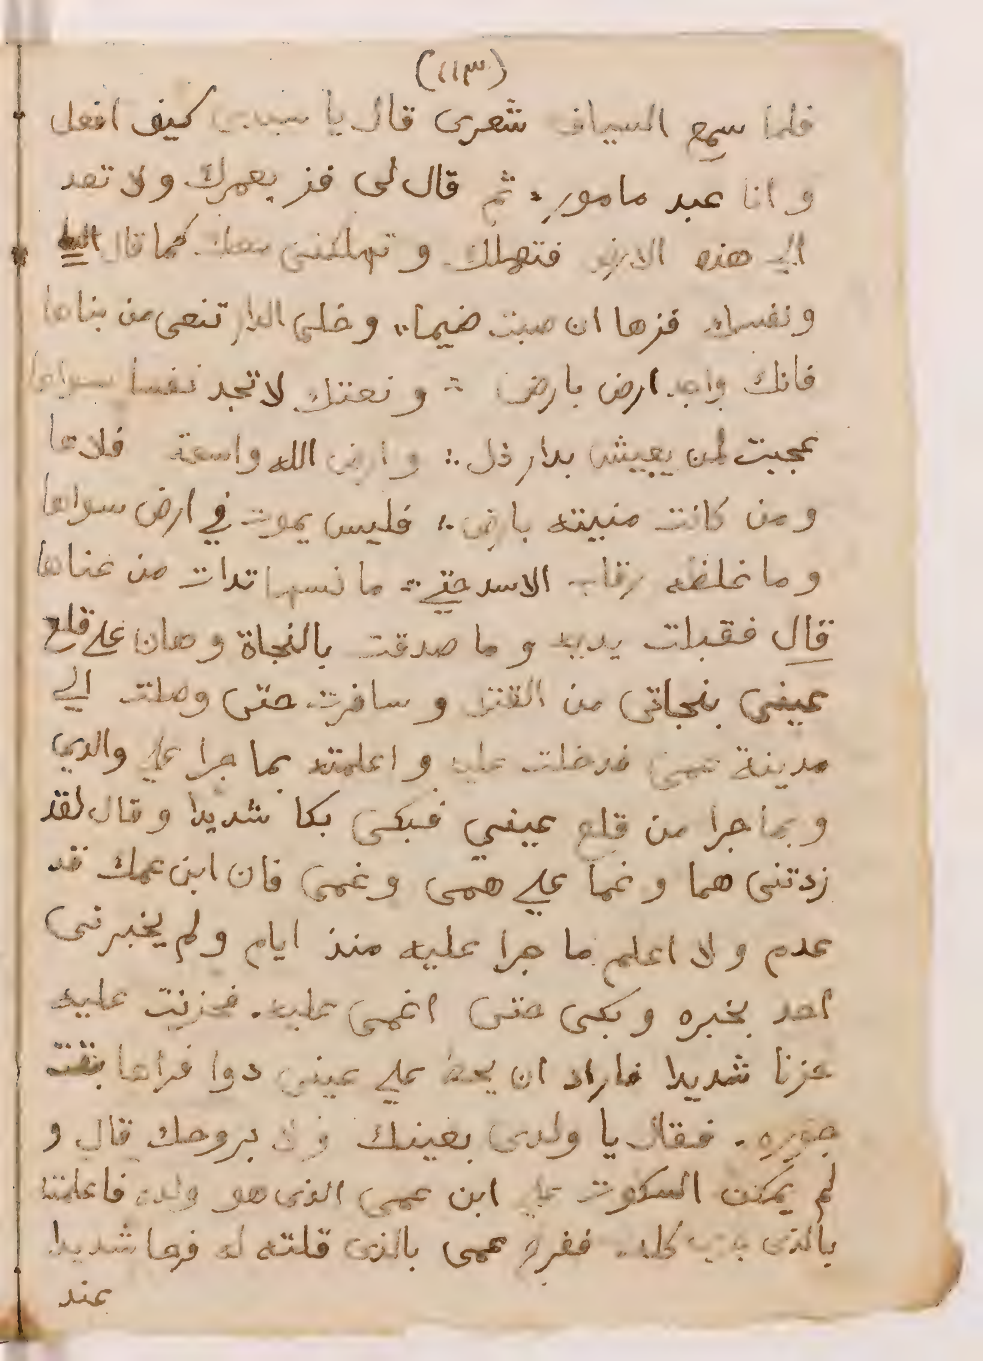 (١١٣)
فلما سمع السياف شعرى قال يا سيدى كيف افعل
و انا عبد مامور ؞ ثم قال لى فز بعمرك و لا تعد
الى هذه الارض فتهلك و تهلكنى معك كما قال
ونفسك فزها ان صبت ضيما ؞ و خلى الدار تنعى من بناها
فانك واجد ارض بارض ؞ و نفسك لا تجد نفسا سواها
عجبت لمن يعيش بدار ذل ؞ و ارض الله واسعة فلاها
و من كانت منيته بارض ؞ فليس يموت في ارض سواها
و ما غلظه رقاب الاسد حتي ؞ ما نسها تدات من عناها
قال فقبلت يديه و ما صدقت بالنجاة و هان علي قلع
عيني بنجاتى من القتل و سافرت حتى وصلت الي
مدينة عمى فدخلت عليه و اعلمته بما جرا علي والدي
و بما جرا من قلع عيني فبكى بكا شديدا و قال لقد
زدتنى هما و غما علي همى و غمى فان ابن عمك قد
عدم و لا اعلم ما جرا عليه منذ ايام و لم يخبرنى
احد بخبره و بكى حتى اغمى عليه . فحزنت عليه
حزنا شديدا فاراد ان يحط علي عينى دوا فراها بقت
جوره . فقال يا ولدى بعينك و لا بروحك قال و
لم يمكن السكوت علي ابن عمى الذى هو ولده فاعلمته
بالذى جرى كله . ففرح عمى بالذى قلته له فرحا شديدا
عند